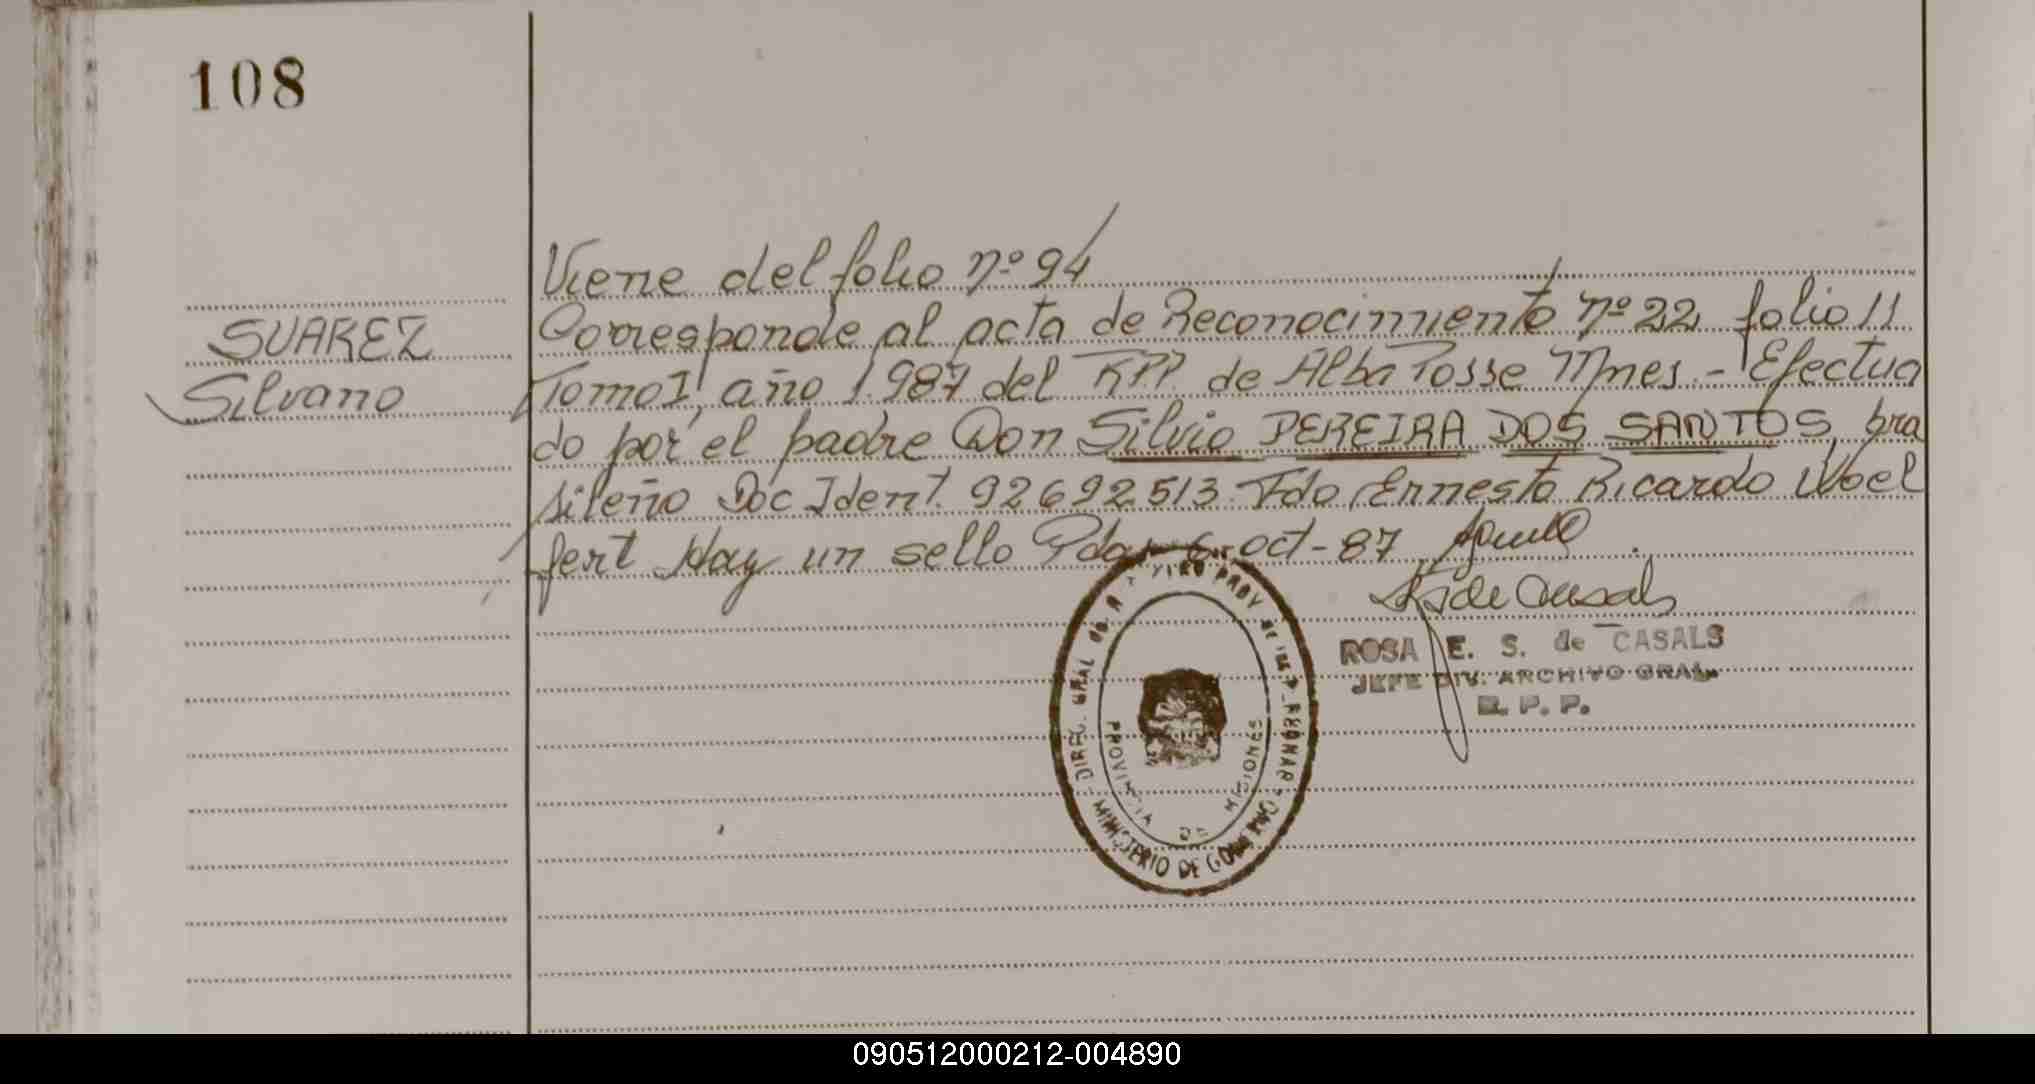 108
Viene del folio Nº 94
SUAREZ
Silvano
Corresponde al acta de Reconocimiento Nº 22 folio 11
Tomo I, año 1.987 del R.P.P. de Alba Posse Mnes.- Efectua
do por el padre Don Silvio PEREIRA DOS SANTOS, bra
sileño Doc Ident. 92692513. Fdo, Ernesto Ricardo Woel
fert Hay un sello Pdas 6-oct-87
RS de Casals
ROSA E. S. de CASALS
JEFE DIV. ARCHIVO GRAL.
R. P. P.
MINISTERIO DE GOBIERNO
PROVINCIA DE MISIONES
090512000212-004890